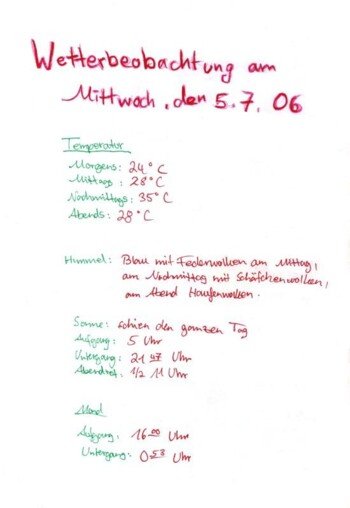 Wetterbeobachtung am
Mittwoch, den 5.7.06
Temperatur
Morgens: 24°C
Mittags: 28°C
Nachmittags: 35°C
Abends: 28°C
Himmel: Blau mit Federwolken am Mittag,
am Nachmittag mit Schäfchenwolken,
am Abend Haufenwolken.
Sonne: schien den ganzen Tag
Aufgang: 5 Uhr
Untergang: 21 47 Uhr
Abendrot: 1/2 11 Uhr
Mond
Aufgang: 16 00 Uhr
Untergang: 0 53 Uhr